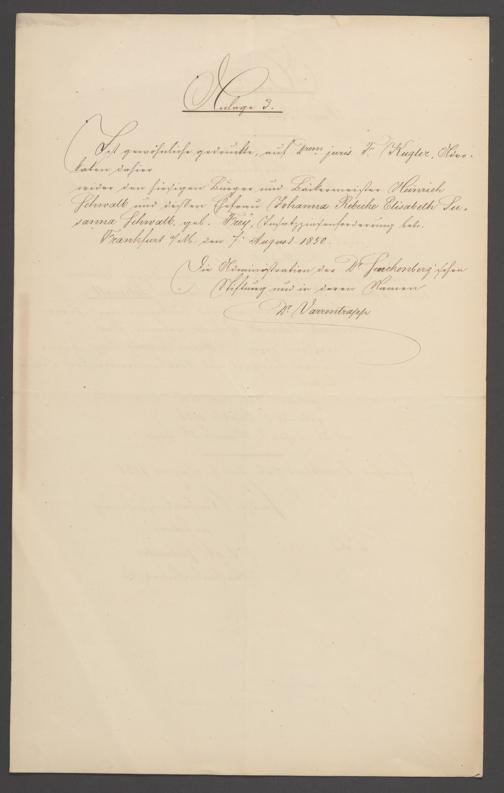 Anlage 3.
Ist gewöhnliche gedruckte, auf Dnum juris Dr. Kugler, Advo-
katen dahier
wider den hiesigen Bürger und Bäckermeister Heinrich
Schwalb und dessen Ehefrau Johanna Rebecke Elisabeth Su-
sanna Schwalb, geb. Frey, Insatzzinsenforderung betr.
Frankfurt a/M. den 7. August 1850.
Die Administration der Dr. Senckenberg'schen
Stiftung und in deren Namen
Dr. Varrentrapp